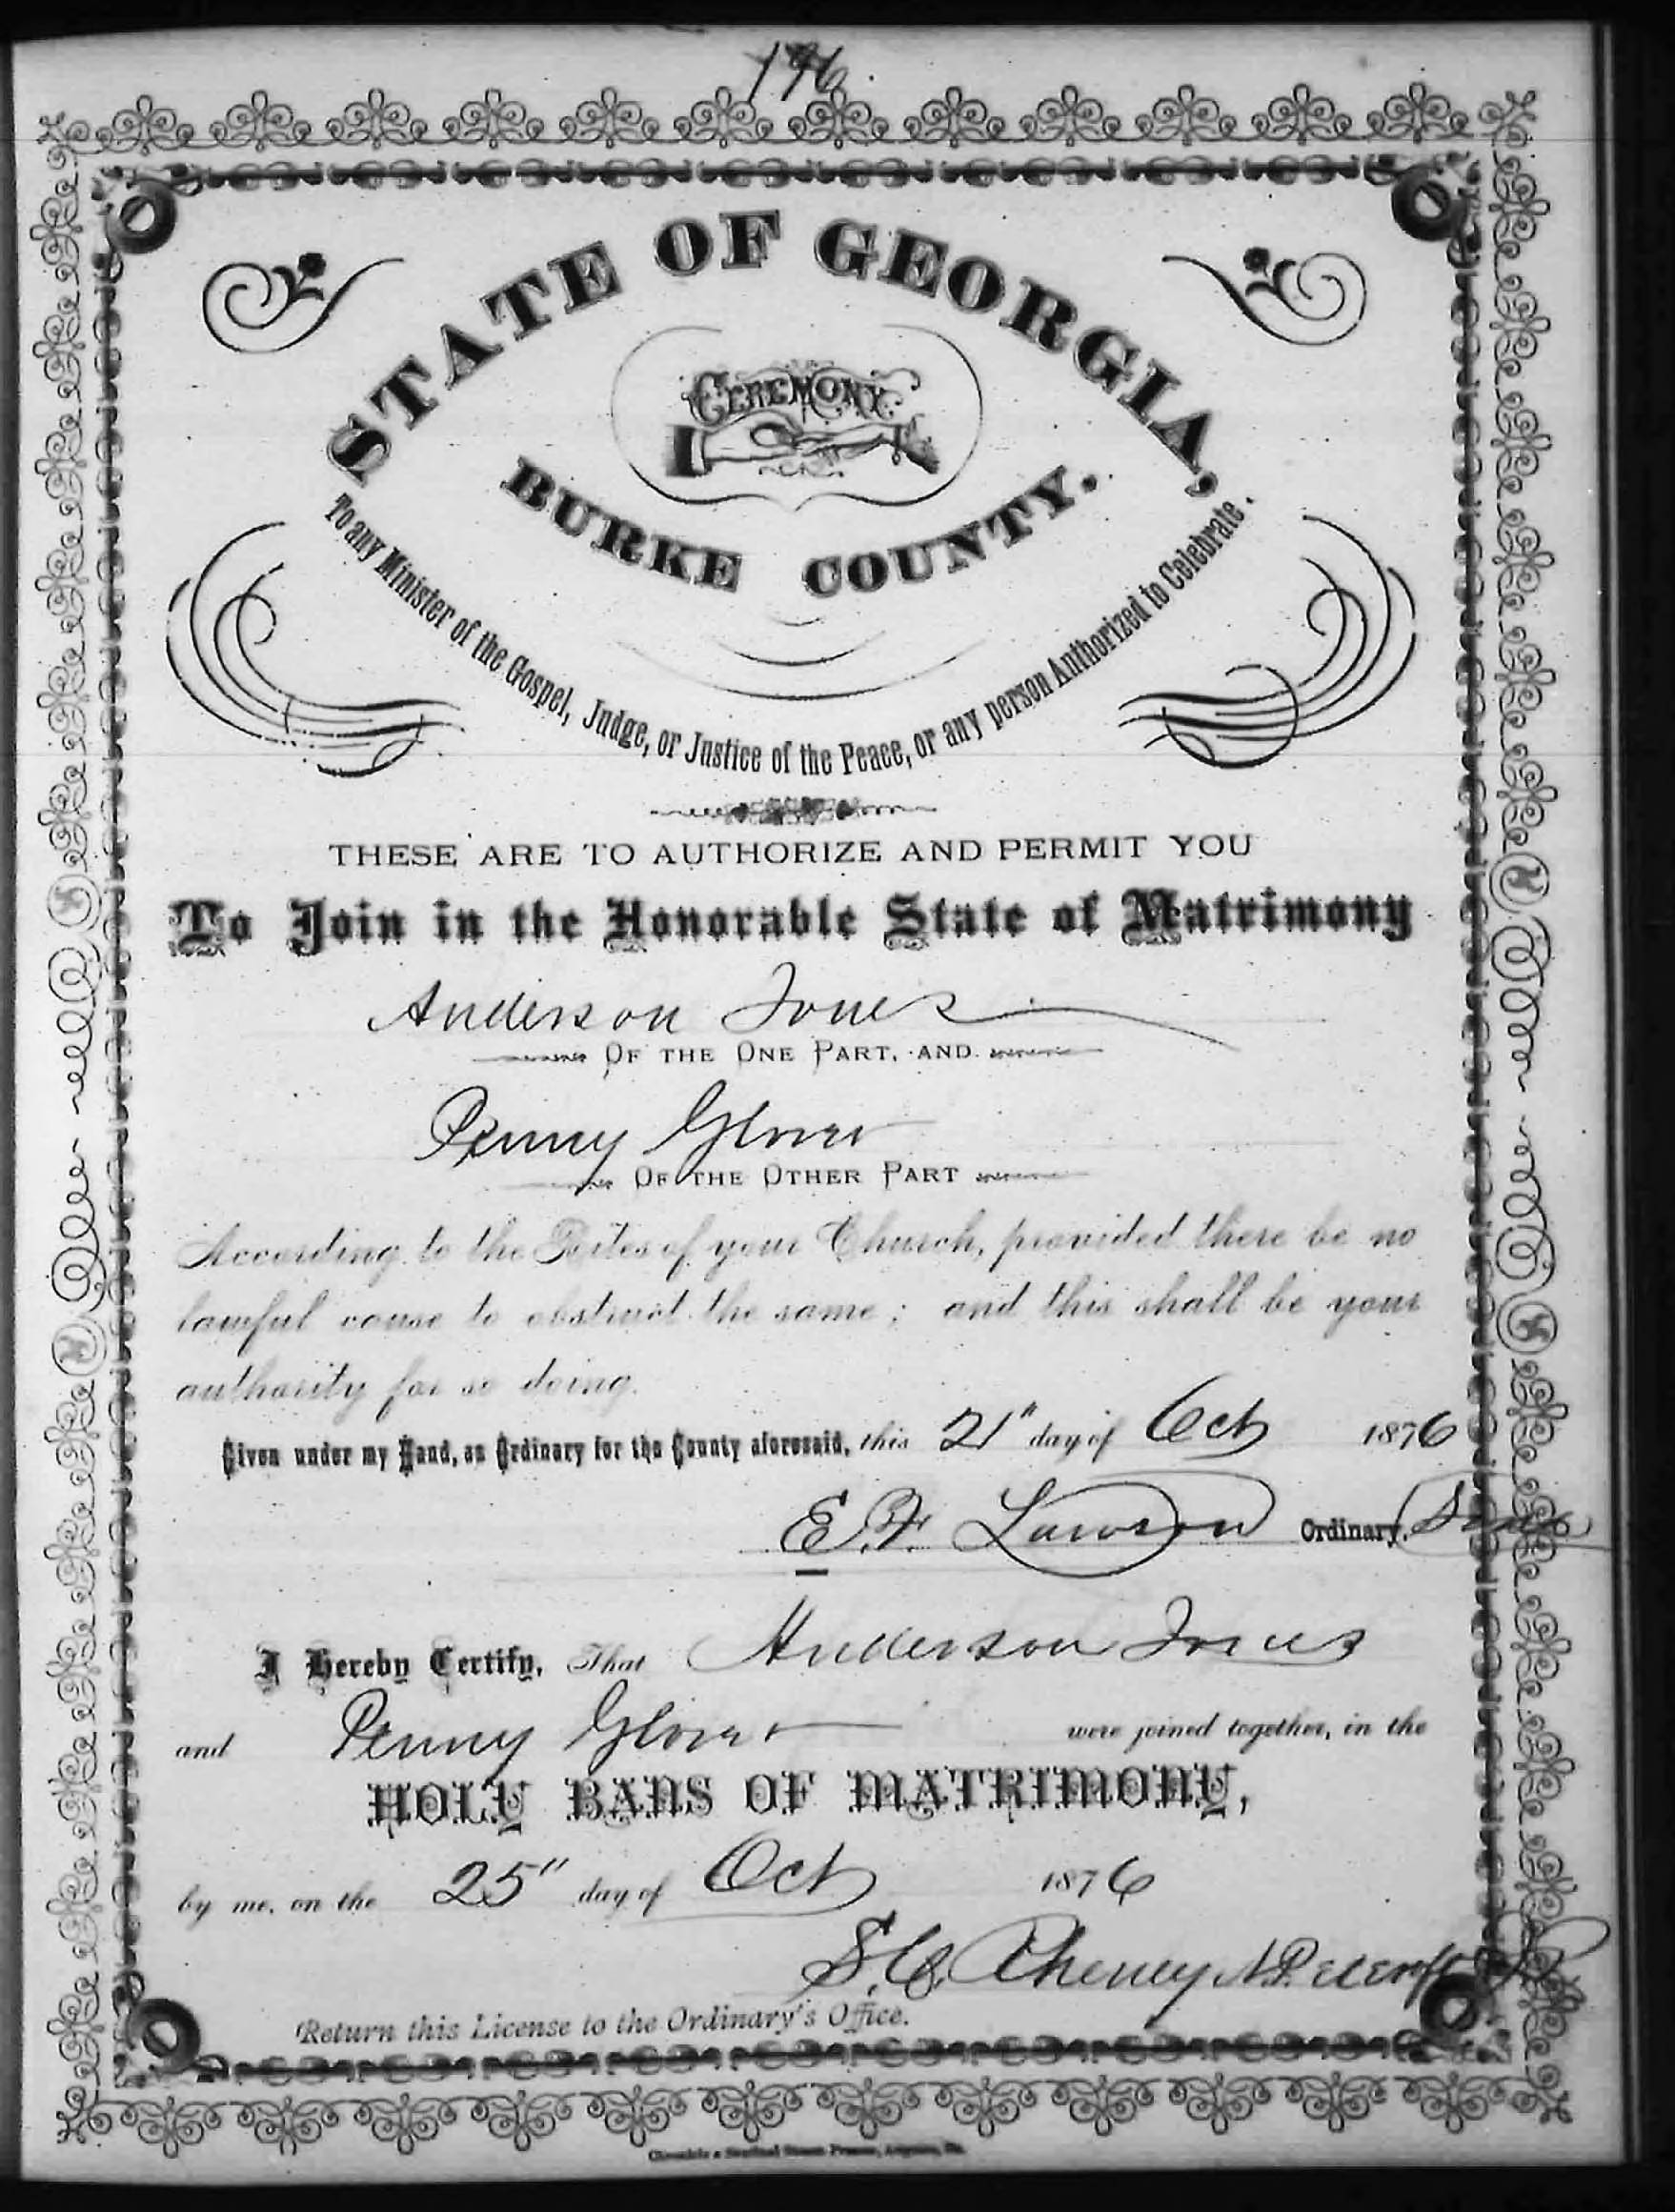 196.
STATE OF GEORGIA,
CEREMONY
BURKE COUNTY.
To any Minister of the Gospel, Judge, or Justice of the Peace, or any person Authorized to Celebrate.
THESE ARE TO AUTHORIZE AND PERMIT YOU
To Join in the Honorable State of Matrimony
Anderson Jones
OF THE ONE PART, AND
Penny Glover
OF THE OTHER PART
According to the Rites of your Church, provided there be no
lawful cause to obstruct the same; and this shall be your
authority for so doing.
Given under my Hand, as Ordinary for the County aforesaid, this 21" day of Oct 1876
E.F. Lawson Ordinary.
I Hereby Certify, That Anderson Jones
and Penny Glover were joined together, in the
HOLY BANS OF MATRIMONY,
by me, on the 25" day of Oct 1876
S.C. Cheney N.P.
Return this License to the Ordinary's Office.
Chronicle & Sentinel Steam Presses, Augusta, Ga.